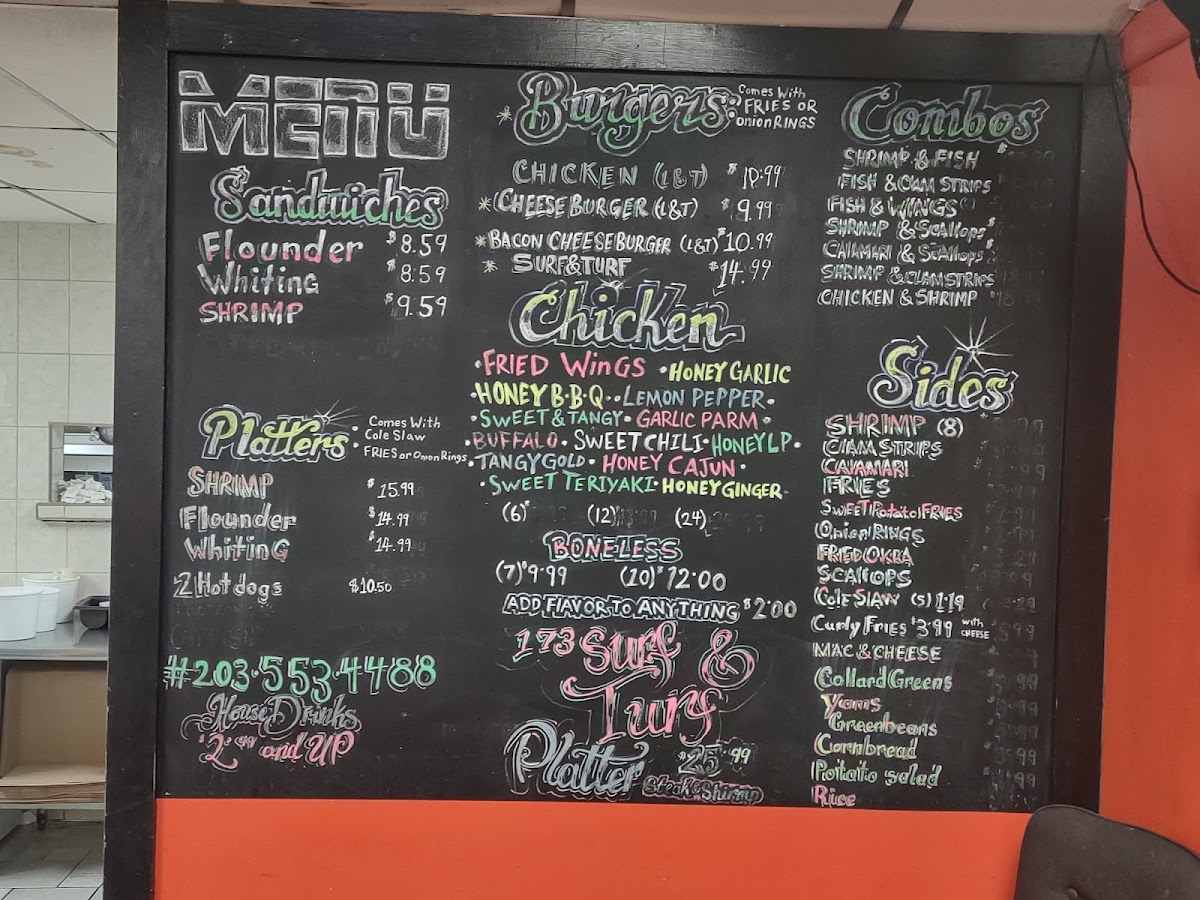 MENU
Sandwiches
Flounder $8.59
Whiting $8.59
SHRIMP $9.59
Platters: Comes With
Cole Slaw
FRIES or Onion Rings
SHRIMP $15.99
Flounder $14.99
Whiting $14.99
2 Hot dogs $10.50
#203.553.4488
House Drinks
$2.99 and UP
* Burgers: Comes With
FRIES OR
onion RINGS
CHICKEN (L&T) $10.99
* CHEESE BURGER (L&T) $9.99
* BACON CHEESEBURGER (L&T) $10.99
* SURF&TURF $14.99
Chicken
• FRIED WINGS • HONEY GARLIC
HONEY B•B•Q • LEMON PEPPER •
• SWEET & TANGY • GARLIC PARM •
• BUFFALO • SWEET CHILI • HONEY LP •
• TANGY GOLD • HONEY CAJUN •
• SWEET TERIYAKI • HONEY GINGER
(6) (12) (24)
BONELESS
(7) $9.99 (10) $12.00
ADD FLAVOR TO ANYTHING $2.00
173 Surf &
Turf
Platter $25.99
Steak & Shrimp
Combos
SHRIMP & FISH
FISH & CLAM STRIPS
FISH & WINGS
SHRIMP & Scallops
CALAMARI & Scallops
SHRIMP & CLAM STRIPS
CHICKEN & SHRIMP
Sides
SHRIMP (8)
CLAM STRIPS
CALAMARI
FRIES
SWEET Potato FRIES
Onion RINGS
FRIED OKRA
SCALLOPS
Cole SLAW (S) 1.19
Curly FRIES $3.99 with CHEESE
MAC & CHEESE
Collard Greens
Yams
Greenbeans
Cornbread
Potato salad
Rice